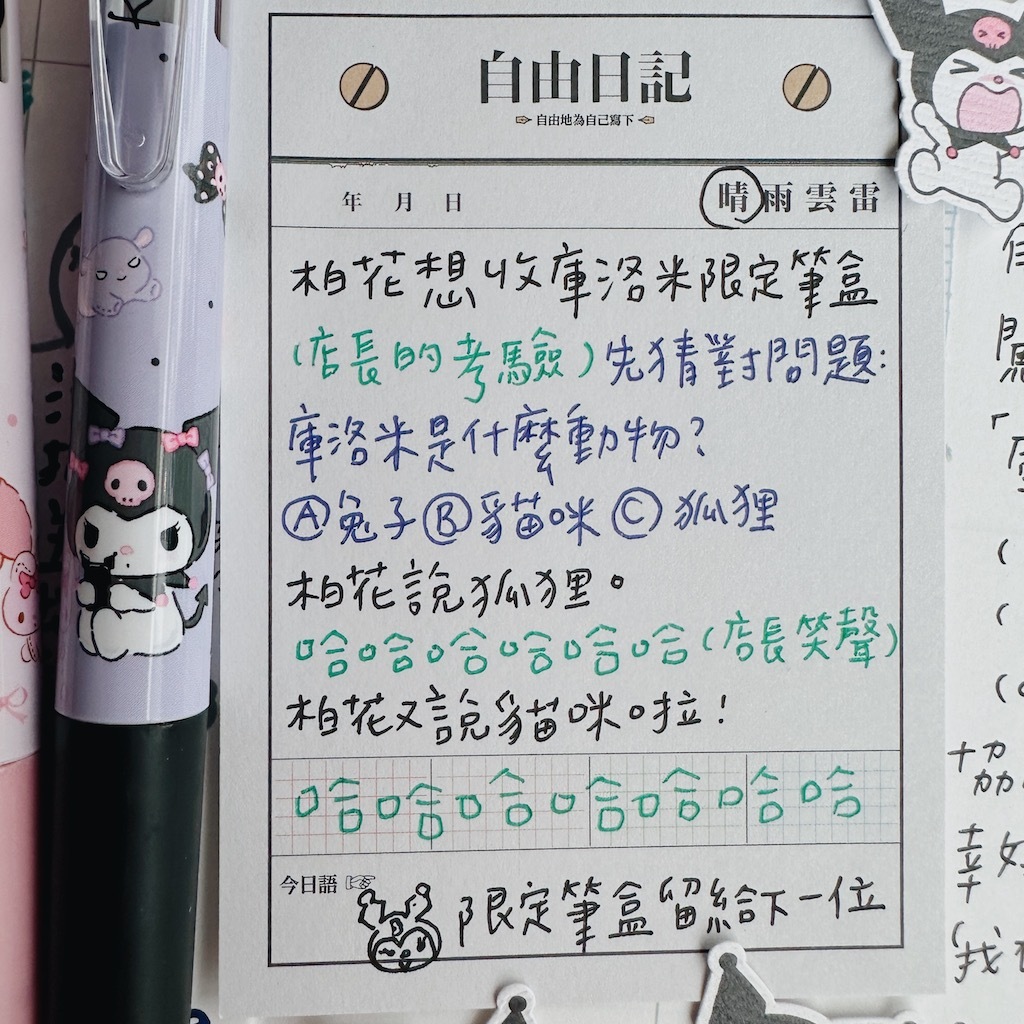 自由日記
自由地為自己寫下
年 月 日 晴雨雲雷
柏花想收庫洛米限定筆盒
(店長的考驗)先猜對問題:
庫洛米是什麼動物?
Ⓐ兔子Ⓑ貓咪Ⓒ狐狸
柏花說狐狸。
哈哈哈哈哈哈(店長笑聲)
柏花又說貓咪啦!
哈哈哈哈哈哈哈
今日語 限定筆盒留給下一位
協
幸好
(我